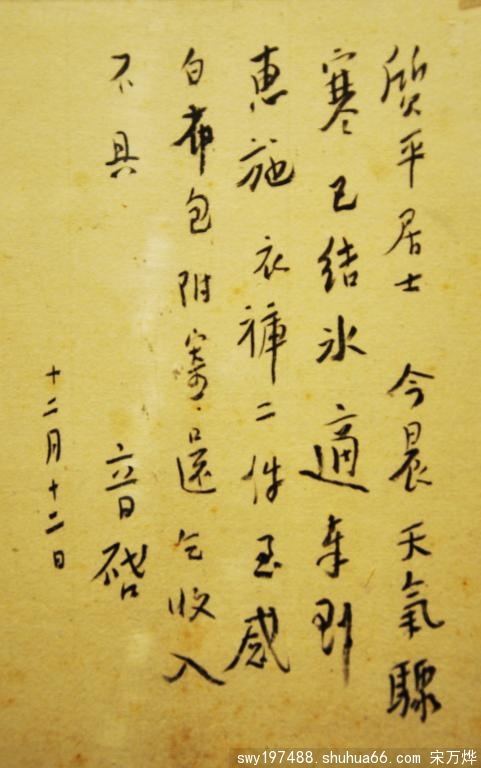 質平居士 今晨天氣驟
寒已结冰適奉到
惠施衣褲二件至感
白布包附寄還乞收入
不具
音啓
十二月十二日
swy197488.shuhua66.com 宋万烨